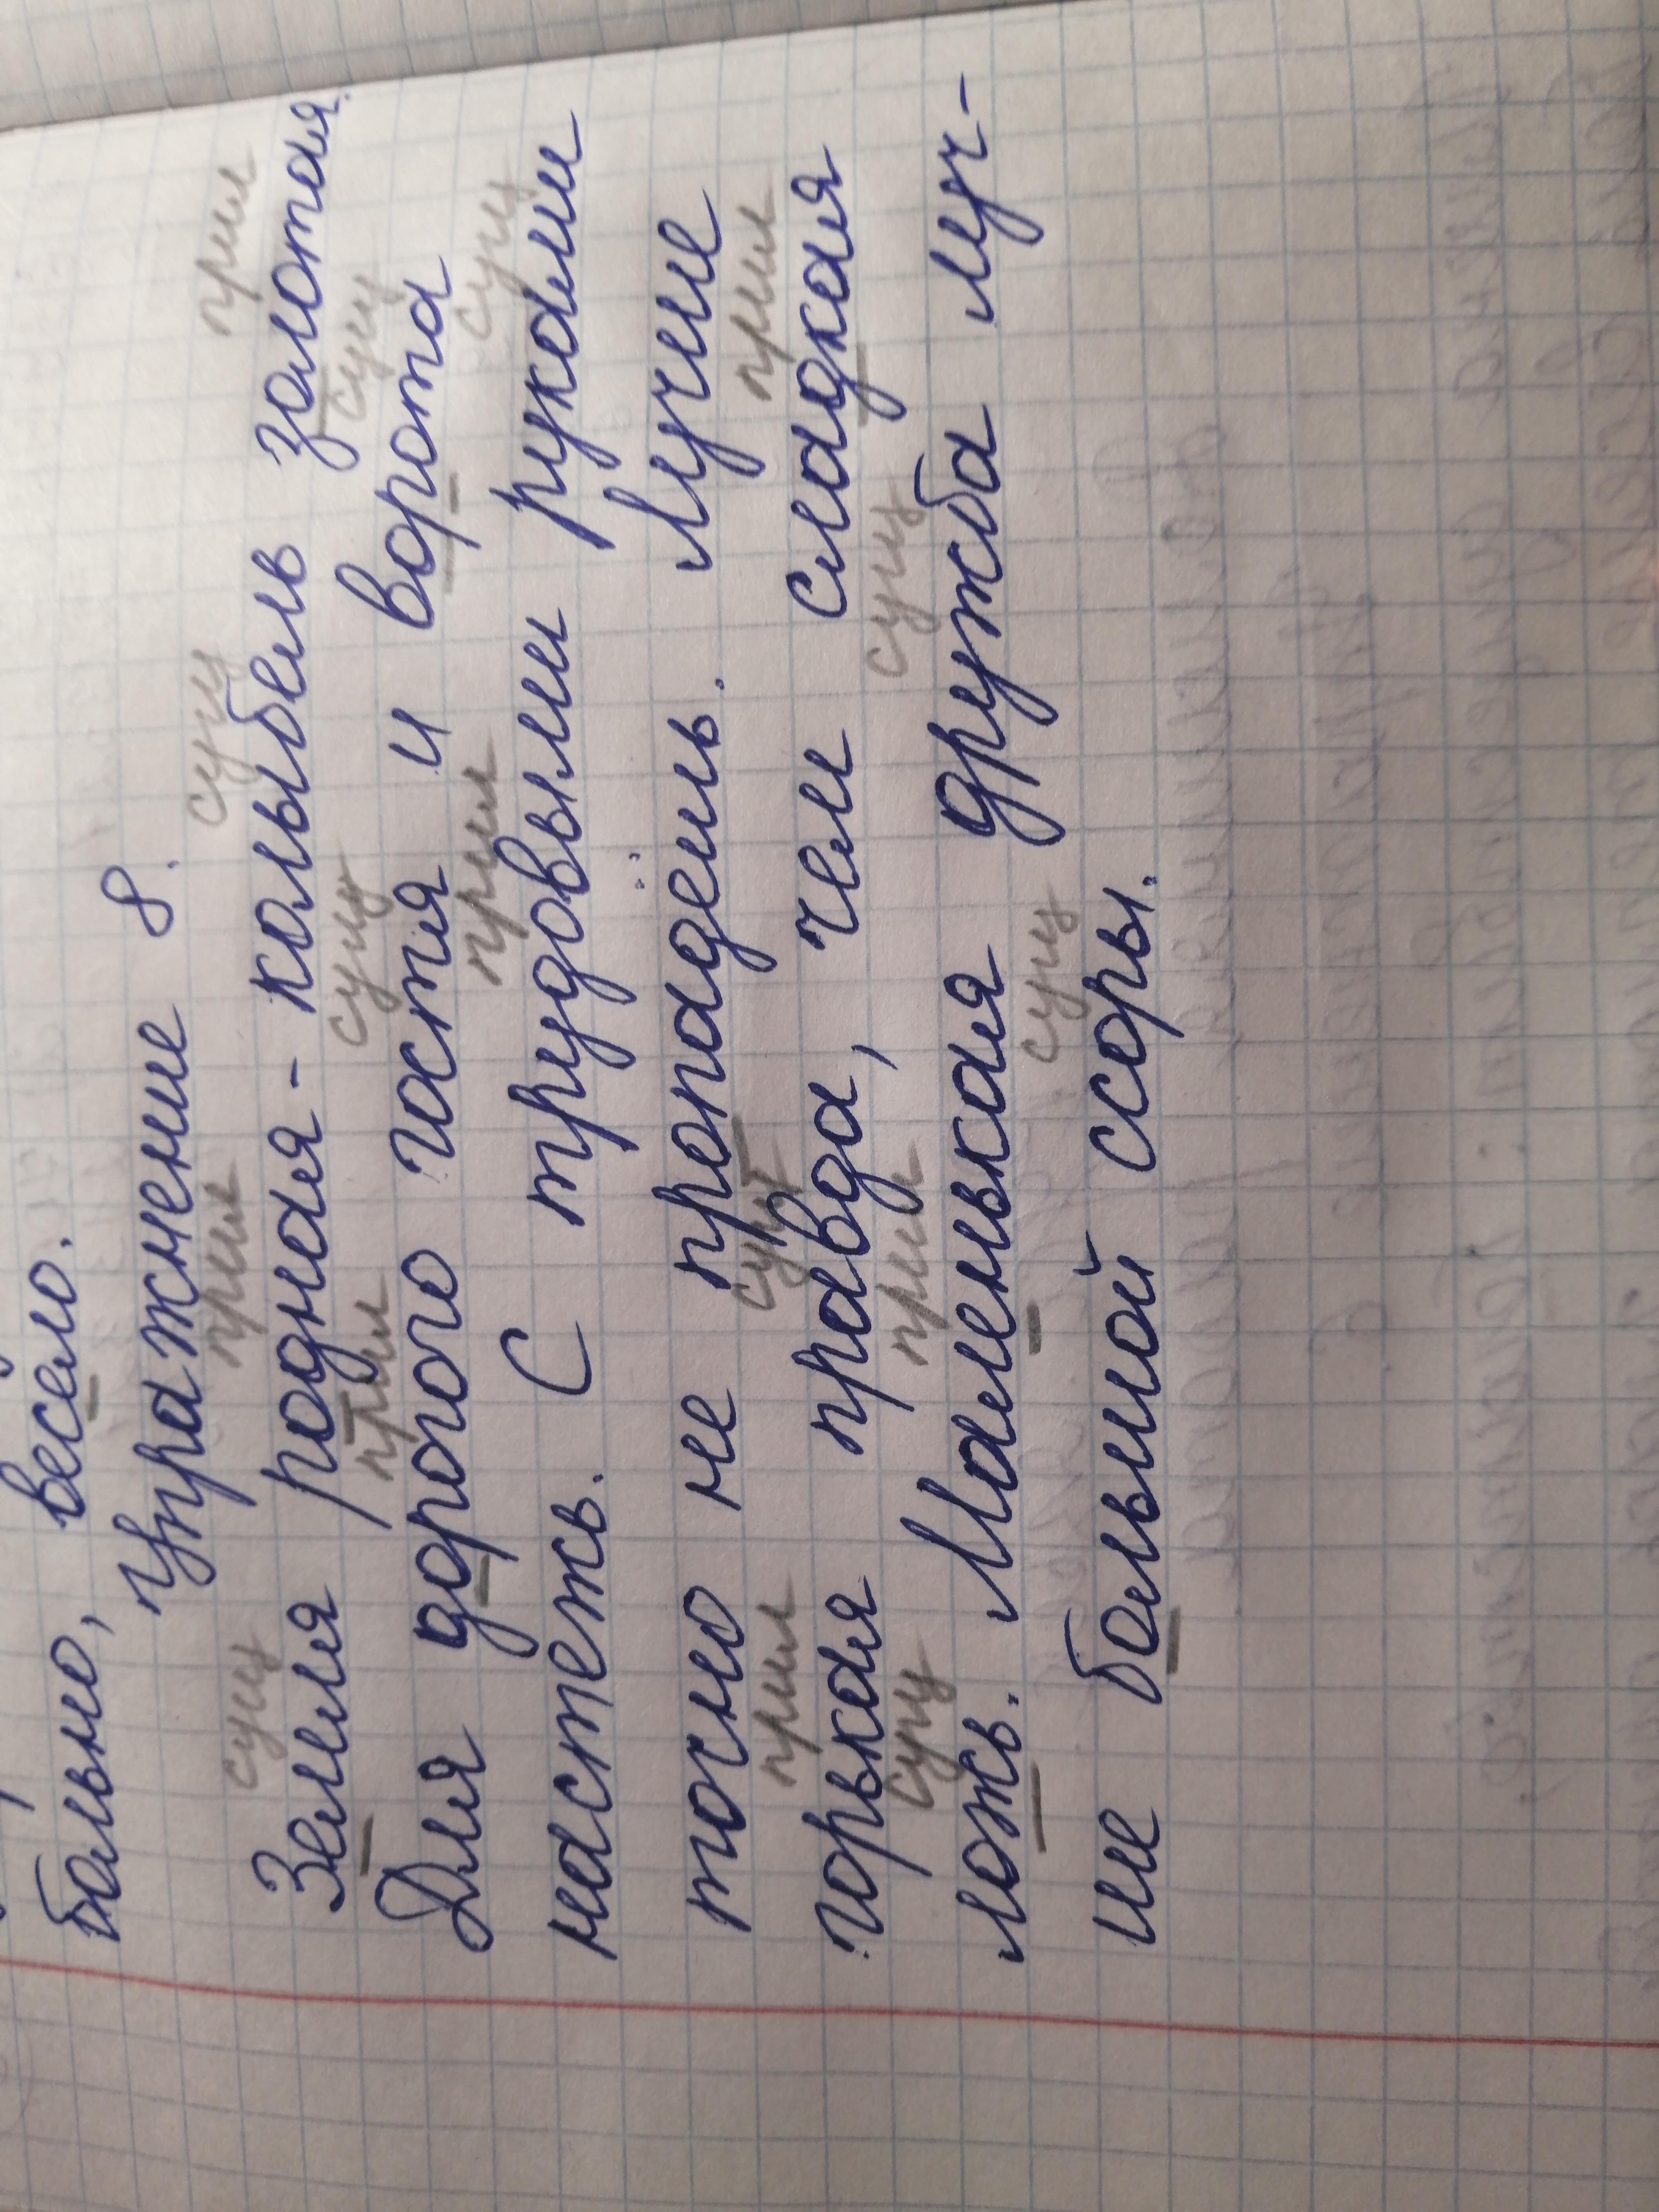 бально, весело.
Упражнение 8.
сущ прил сущ прил
Земля родная - колыбель золотая.
прил сущ сущ
Для дорого гостя и ворота
прил сущ
настежь. С трудовыми руками
точно не пропадёшь. Лучше
прил сущ прил
горькая правда, чем сладкая
сущ прил сущ
ложь. Маленькая дружба луч-
сущ
ше большой ссоры.